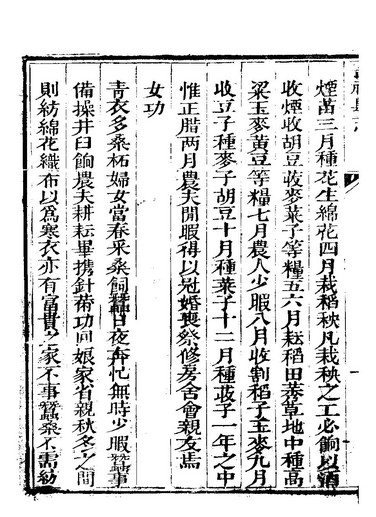 煙苗三月種花生綿花四月栽稻秧凡栽秧之工必餉以酒
收煙收胡豆收麥菜子等糧五六月耘稻田薅草地中種高
粱玉麥黃豆等糧七月農人少暇八月收割稻子玉麥九月
收豆子種麥子胡豆十月種菜子十二月種收子一年之中
惟正腊两月農夫閒暇得以冠婚喪祭修房舍會親友焉
女功
青衣多桑柘婦女當春采桑飼蠶日夜奔忙無時少暇蠶事
備操井臼餉農夫耕耘畢携針黹功回娘家省親秋冬之間
則紡綿花織布以爲寒衣亦有富貴之家不事蠶桑不需紡